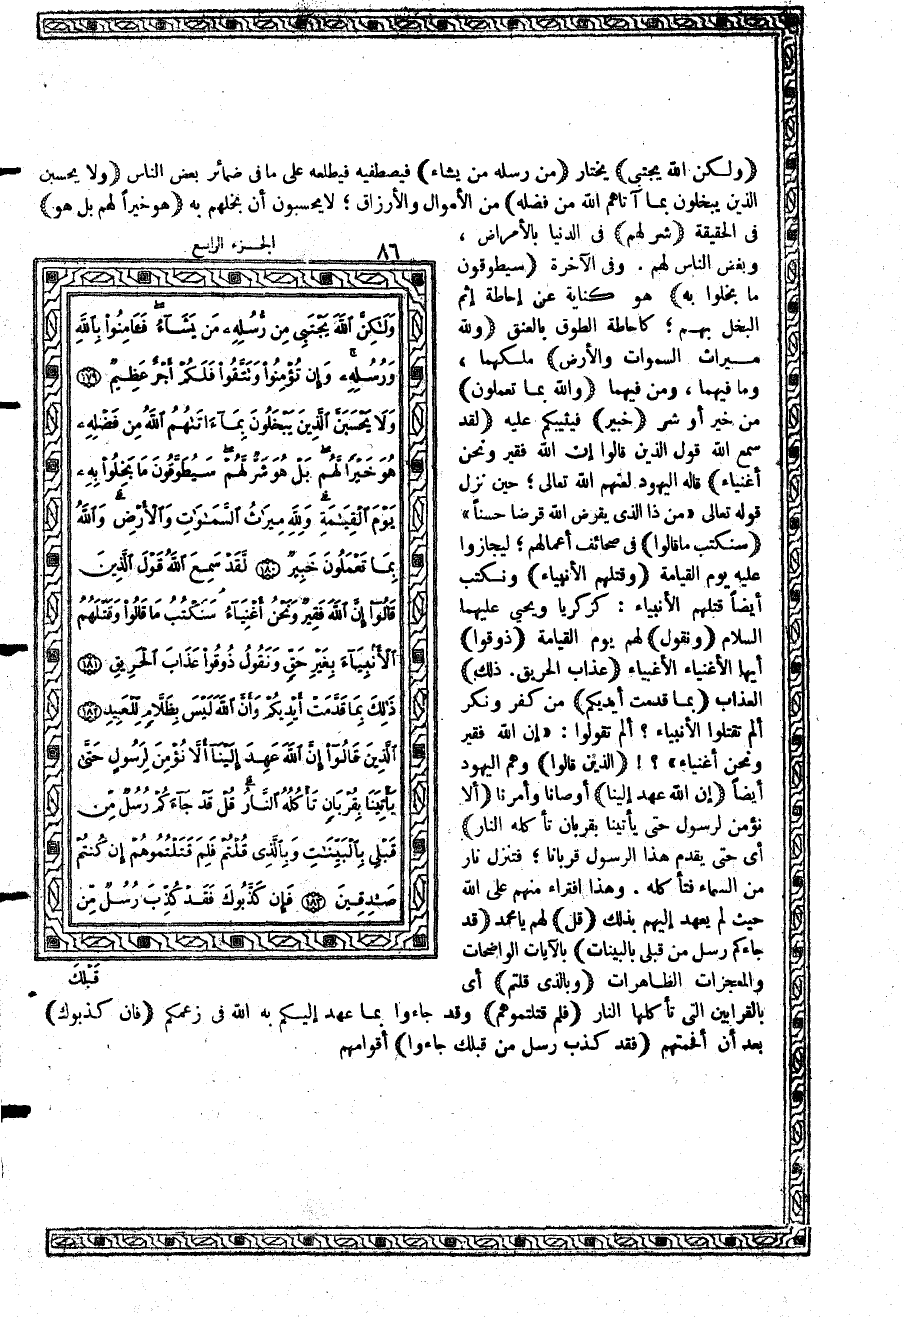 (ولـكن الله يجتبي) يختار (من رسله من يشاء) فيصطفيه فيطلعه على ما فى ضمائر بعض الناس (ولا يحسبن
الذين يبخلون بمـا آتاهم الله من فضله) من الأموال والأرزاق ؛ لايحسبون أن بخلهم به (هو خيراً لهم بل هو)
فى الحقيقة (شر لهم) فى الدنيا بالأمراض ،
وبغض الناس لهم . وفى الآخرة (سيطوقون
ما بخلوا به) هو كناية عن إحاطة إثم
البخل بهـم ؛ كاحاطة الطوق بالعنق (ولله
مـيراث السموات والأرض) ملـكهما ،
وما فيهما ، ومن فيهما (والله بمـا تعملون)
من خير أو شر (خبير) فيثيبكم عليه (لقد
سمع الله قول الذين قالوا إن الله فقير ونحن
أغنياء) قاله اليهود لعنهم الله تعالى ؛ حين نزل
قوله تعالى «من ذا الذى يقرض الله قرضا حسناً»
(سنكتب ماقالوا) فى صحائف أعمالهم ؛ ليجازوا
عليه يوم القيامة (وقتلهم الأنبياء) ونـكتب
أيضاً قتلهم الأنبياء : كزكريا ويحيى عليهـما
السلام (ونقول) لهم يوم القيامة (ذوقوا)
أيها الأغنياء الأغبياء (عذاب الحريق . ذلك)
العذاب (بمـا قدمت أيديكم) من كفر ونكر
ألم تقتلوا الأنبياء ؟ ألم تقولوا : «إن الله فقير
ونحن أغنياء» ؟ ! (الذين قالوا) وهم اليهود
أيضاً (إن الله عهد إلينا) أوصانا وأمرنا (ألا
نؤمن لرسول حتى يأتينا بقربان تأكله النار)
أى حتى يقدم هذا الرسول قربانا ؛ فتنزل نار
من السماء فتأكله . وهذا افتراء منهم على الله
حيث لم يعهد إليهم بذلك (قل) لهم يامحمد (قد
جاءكم رسل من قبلى بالبينات) بالآيات الواضحات
والمعجزات الظـاهرات (وبالذى قلتم) أى
بالقرابين التى تأكلها النار (فلم قتلتموهم) وقد جاءوا بمـا عهد إليـكم به الله فى زعمكم (فان كذبوك)
بعد أن أفحمتهم (فقد كذب رسل من قبلك جاءوا) أقوامهم
الجـزء الرابع
٨٦
وَلَـٰكِنَّ ٱللَّهَ يَجْتَبِى مِن رُّسُلِهِۦ مَن يَشَآءُ ۖ فَـَٔامِنُوا۟ بِٱللَّهِ
وَرُسُلِهِۦ ۚ وَإِن تُؤْمِنُوا۟ وَتَتَّقُوا۟ فَلَكُمْ أَجْرٌ عَظِيمٌ ١٧٩
وَلَا يَحْسَبَنَّ ٱلَّذِينَ يَبْخَلُونَ بِمَآ ءَاتَىٰهُمُ ٱللَّهُ مِن فَضْلِهِۦ
هُوَ خَيْرًا لَّهُم ۖ بَلْ هُوَ شَرٌّ لَّهُمْ ۖ سَيُطَوَّقُونَ مَا بَخِلُوا۟ بِهِۦ
يَوْمَ ٱلْقِيَـٰمَةِ ۗ وَلِلَّهِ مِيرَٰثُ ٱلسَّمَـٰوَٰتِ وَٱلْأَرْضِ ۗ وَٱللَّهُ
بِمَا تَعْمَلُونَ خَبِيرٌ ١٨٠ لَّقَدْ سَمِعَ ٱللَّهُ قَوْلَ ٱلَّذِينَ
قَالُوٓا۟ إِنَّ ٱللَّهَ فَقِيرٌ وَنَحْنُ أَغْنِيَآءُ ۘ سَنَكْتُبُ مَا قَالُوا۟ وَقَتْلَهُمُ
ٱلْأَنۢبِيَآءَ بِغَيْرِ حَقٍّ وَنَقُولُ ذُوقُوا۟ عَذَابَ ٱلْحَرِيقِ ١٨١
ذَٰلِكَ بِمَا قَدَّمَتْ أَيْدِيكُمْ وَأَنَّ ٱللَّهَ لَيْسَ بِظَلَّامٍ لِّلْعَبِيدِ ١٨٢
ٱلَّذِينَ قَالُوٓا۟ إِنَّ ٱللَّهَ عَهِدَ إِلَيْنَآ أَلَّا نُؤْمِنَ لِرَسُولٍ حَتَّىٰ
يَأْتِيَنَا بِقُرْبَانٍ تَأْكُلُهُ ٱلنَّارُ ۗ قُلْ قَدْ جَآءَكُمْ رُسُلٌ مِّن
قَبْلِى بِٱلْبَيِّنَـٰتِ وَبِٱلَّذِى قُلْتُمْ فَلِمَ قَتَلْتُمُوهُمْ إِن كُنتُمْ
صَـٰدِقِينَ ١٨٣ فَإِن كَذَّبُوكَ فَقَدْ كُذِّبَ رُسُلٌ مِّن
قَبْلِكَ